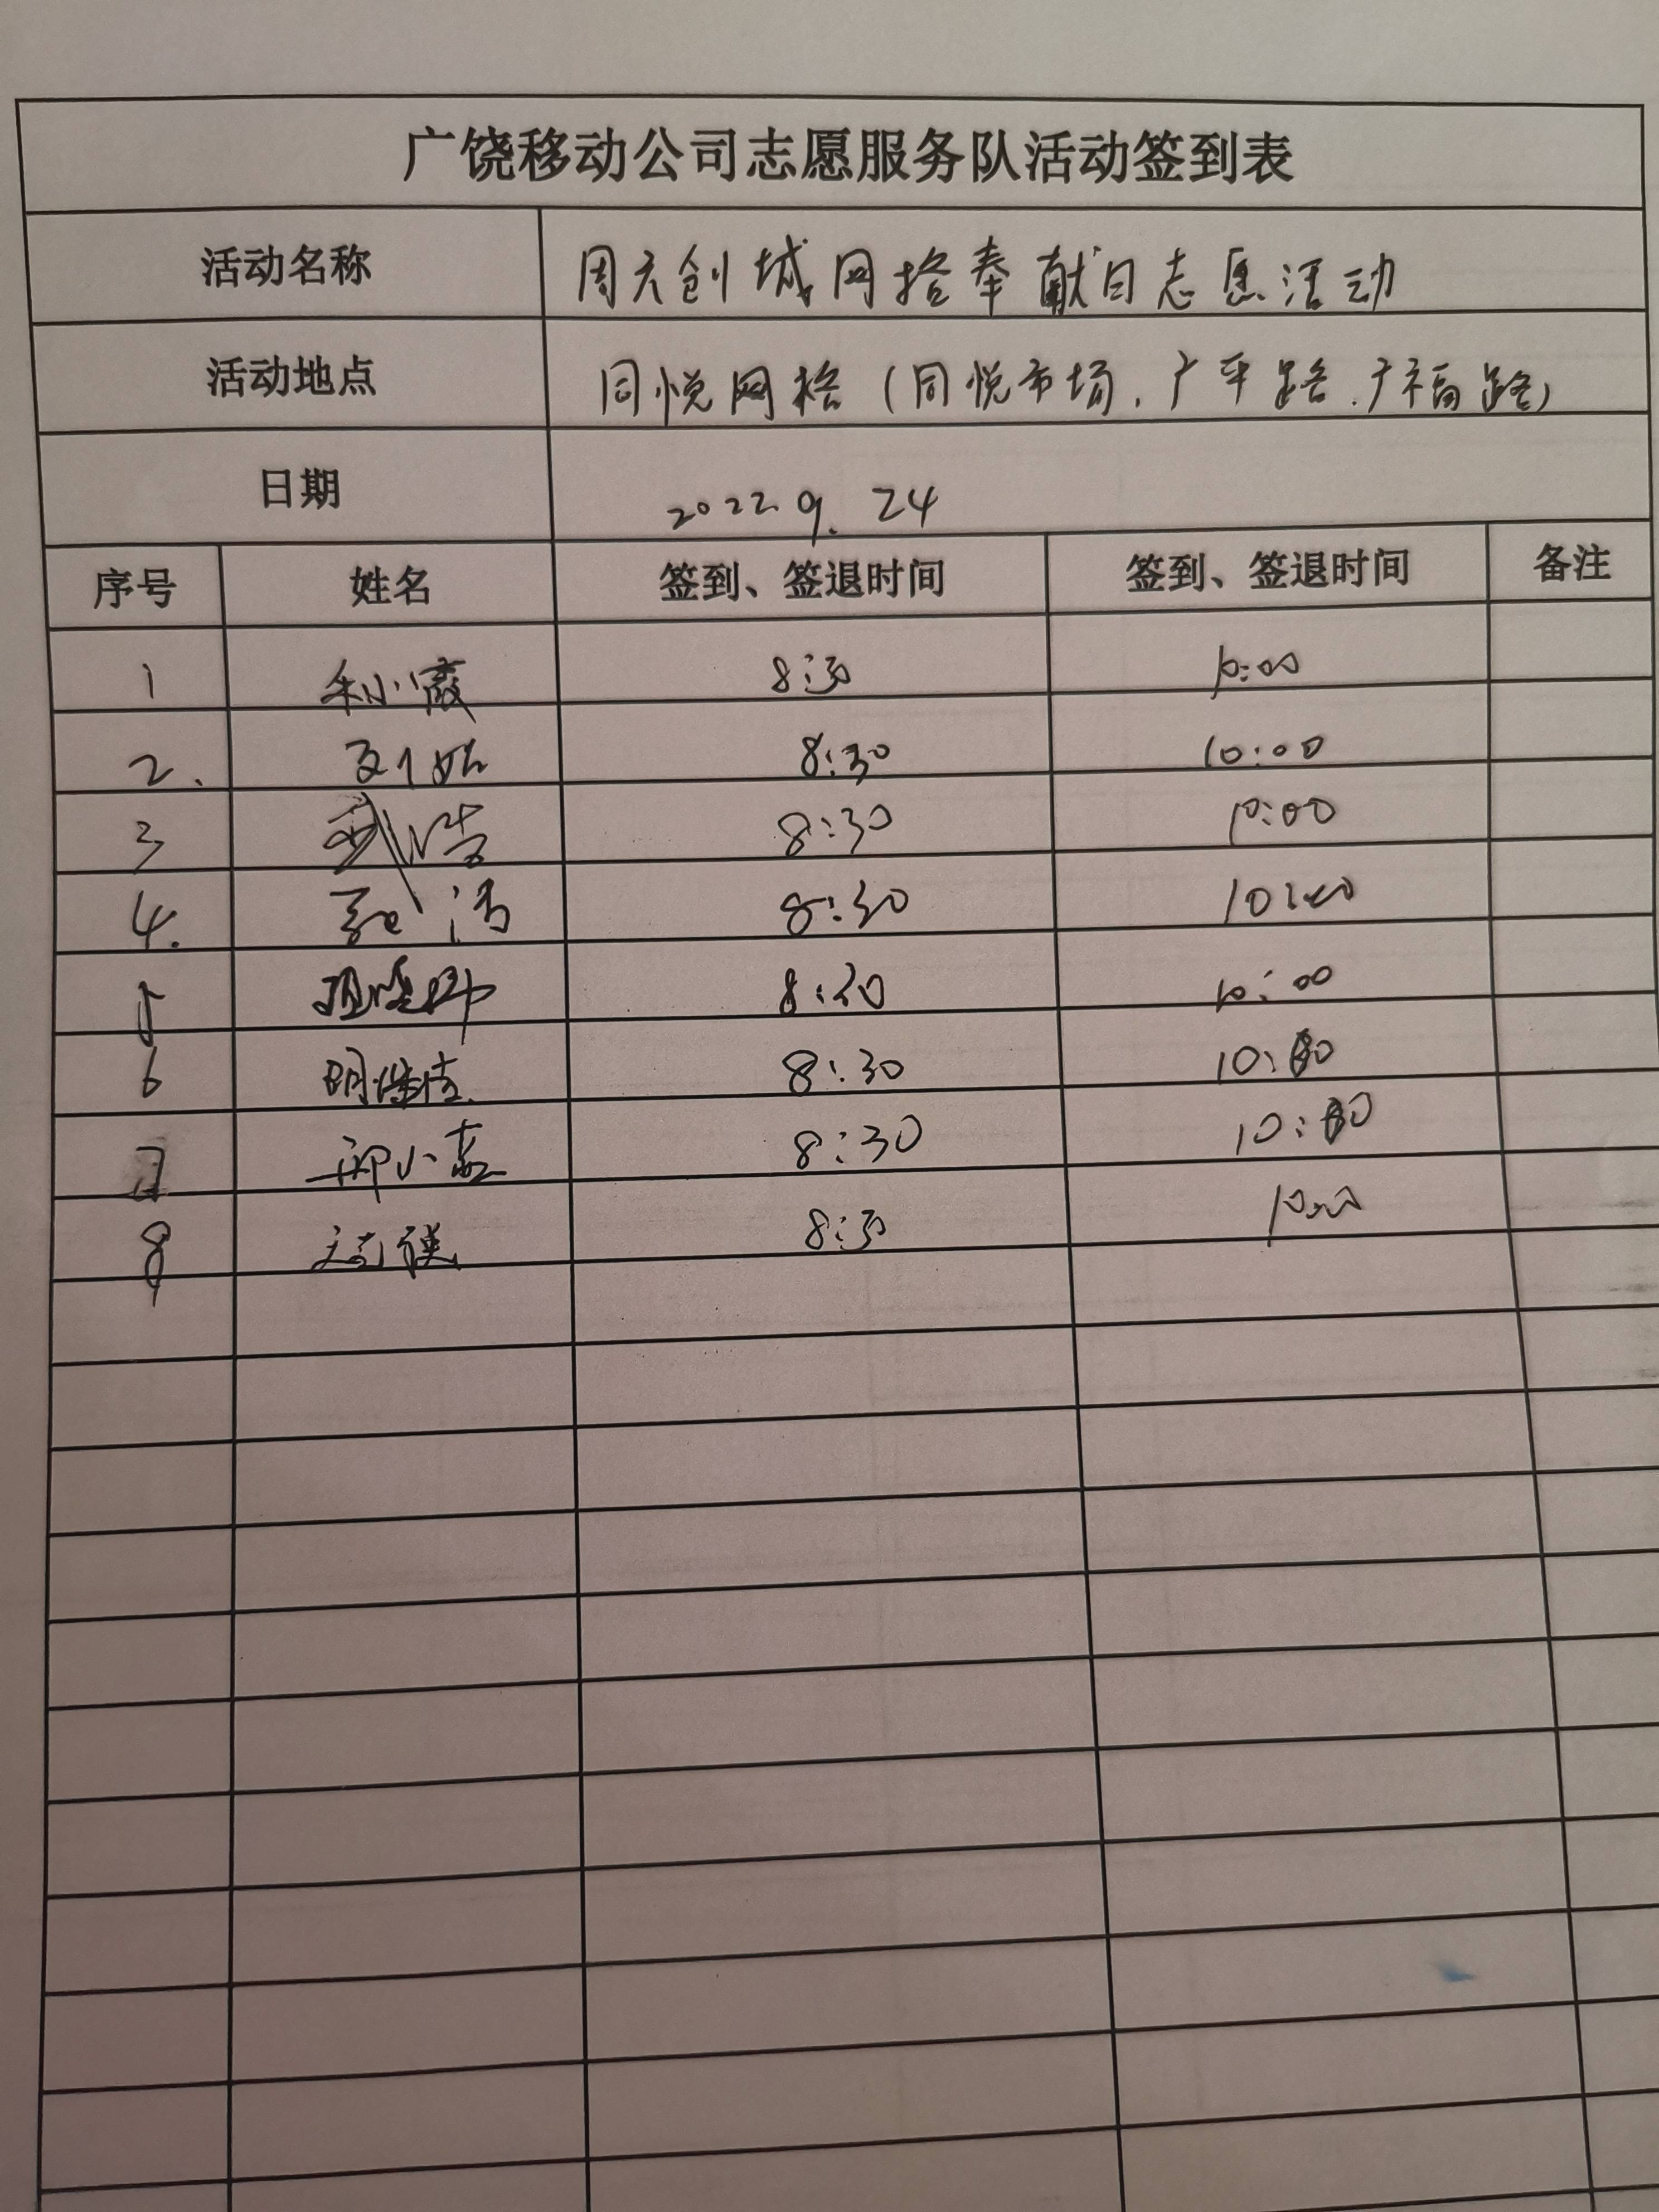 广饶移动公司志愿服务队活动签到表
活动名称 周六创城网格奉献日志愿活动
活动地点 同悦网格（同悦市场、广平路、广福路）
日期 2022.9.24
序号 姓名 签到、签退时间 签到、签退时间 备注
1 8:30 10:00
2. 8:30 10:00
3 武浩 8:30 10:00
4. 8:30 10:00
5 8:30 10:00
6 8:30 10:00
7 8:30 10:00
8 8:30 10:00